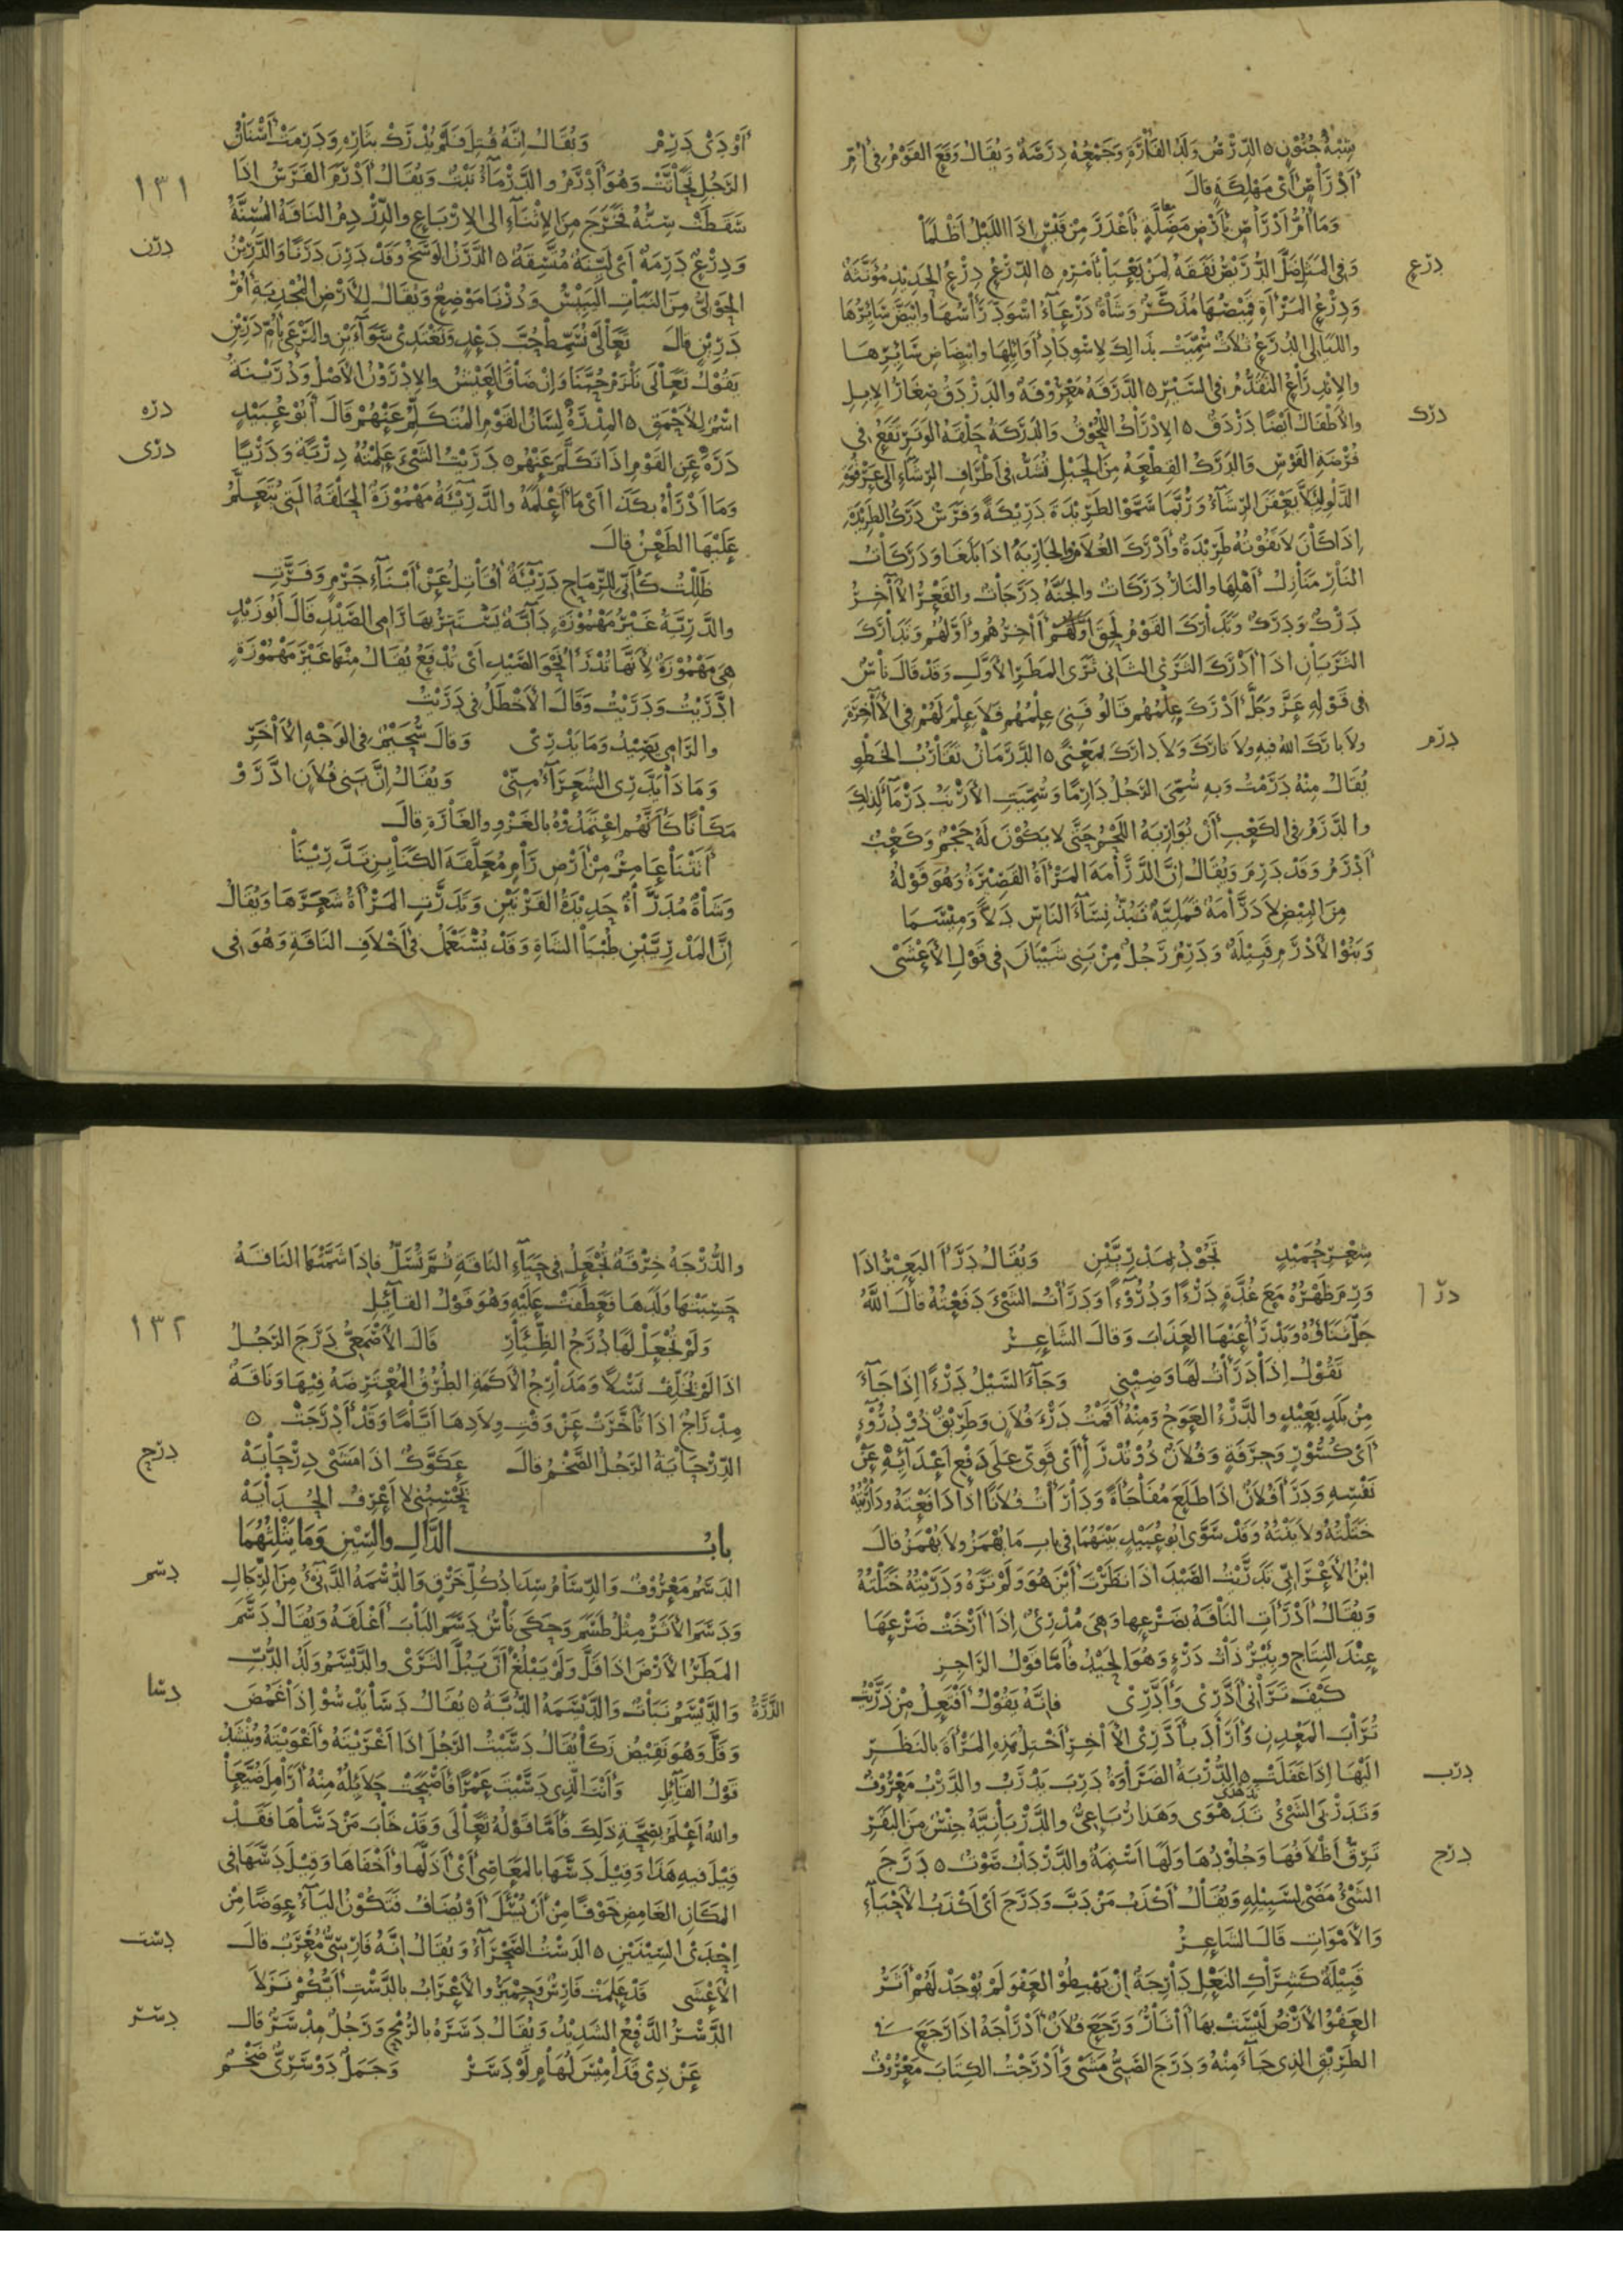 شبه جنون ۵ الدرص ولد الفارة وجمعه درصة ويقال وقع القوم في ام
ادراص اى مهلكة قال
وما ام ادراص بارض مضلة باغدر من قيس اذا الليل اظلما
درع
وفي المثل ضل الدريص نفقه لمن يعيا بامره ۵ الدرع درع الحديد مؤنثة
ودرع المراة قميصها مذكر وشاة درعاء اسود راسها وابيض سائرها
والليالى الدرع ثلاث سميت بذلك لاسوداد اوائلها وابيضاض سائرها
والاندراع التقدم في السير ۵ الدرقة معروفة والدردق صغار الابل
درك
والاطفال ايضا دردق ۵ الادراك اللحوق والدركة حلقة الوتر تقع في
فرضة القوس والدرك القطعة من الحبل تشد في اطراف الرشاء الى عرقوة
الدلو لئلا يعفن الرشاء وربما سموا الطريدة دريكة وفرس درك الطريدة
اذا كان لا تفوته طريدة وادرك الغلام والجارية اذا بلغا ودركات
النار منازل اهلها والنار دركات والجنة درجات والقعر الآخر
درك ودرك وتدارك القوم لحق آخرهم اولهم وتدارك
الثريان اذا ادرك الثرى الثانى ثرى المطر الاول وقد قال ناس
في قوله عز وجل ادرك علمهم قالو فنى علمهم فلا علم لهم في الآخرة
درم
ولا بارك الله فيه ولا تارك ولا دارك بمعنى ۵ الدرمان تقارب الخطو
يقال منه درمت وبه سمى الرجل دارما وسميت الارنب درماء لذلك
والدرم في الكعب ان يواريه اللحم حتى لا يكون له حجم وكعب
ادرم وقد درم ويقال ان الدرامة المراة القصيرة وهو قوله
من البيض لا درامة قملية تبذ نساء الناس دلا وميسما
وبنو الادرم قبيلة ودرم رجل من بنى شيبان في قول الاعشى
اودى درم ويقال انه قتل فلم يدرك بثاره ودرمت اسنان
١٣١
الرجل تحاتت وهو ادرم والدرماء نبت ويقال ادرم الفرس اذا
سقطت سنه فخرج من الاثناء الى الارباع والدرم الناقة المسنة
درن
ودرع درمة اى لينة متسقة ۵ الدرن الوسخ وقد درن درنا والدرين
الحولى من النبات اليبيس ودرنا موضع ويقال للارض المجدبة ام
درين قال تعالى نسمط حب دعد ونغتدى سواءين والمرعى بام درين
يقول تعالى نلزم حبنا وان ضاق العيش والادرون الاصل ودرينة
دره
اسم للاحمق ۵ المدره لسان القوم المتكلم عنهم قال ابو عبيد
درى
دره عن القوم اذا تكلم عنهم ۵ دريت الشئ علمته درية ودريا
وما ادراه بكذا اى ما اعلمه والدريئة مهموزة الحلقة التى يتعلم
عليها الطعن قال
ظللت كانى للرماح دريئة اقاتل عن ابناء جرم وفرت
والدرية غير مهموزة دابة يستتر بها رامى الصيد قال ابو زيد
هى مهموزة لانها تدرا نحو الصيد اى تدفع يقال منها غير مهموزة
ادريت ودريت وقال الاخطل في دريت
والرامى يصيد وما يدرى وقال سحيم في الوجه الاخر
وما ذا يدرى الشعراء منى ويقال ان بنى فلان ادروْ
مكانا كانهم اعتمدوه بالغزو والغارة قال
اتتنا عامر من ارض رام معلقة الكنائن تدرينا
وشاة مدراة حديدة القرنين وتدرت المراة شعرها ويقال
ان المدريين طبيا الشاة وقد يستعمل في اخلاف الناقة وهو في
شعر حميد تجود بمدريين ويقال درا البعير اذا
درا
ورم ظهره مع غدة درءا ودروءا ودرات الشئ دفعته قال الله
جل ثناؤه ويدرا عنها العذاب وقال الشاعر
تقول اذا درات لها وضينى وجاء السيل درءا اذا جاء
من بلد بعيد والدرء العوج ومنه اقمت درء فلان وطريق ذو دروء
اى كسور وجرفة وفلان ذو تدرا اى قوى على دفع اعدائه عن
نفسه ودرا فلان اذا طلع مفاجاة ودارات فلانا اذا دافعته وداريته
ختلته ولاينته وقد سوى ابو عبيد بينهما في باب ما يهمز ولا يهمز قال
ابن الاعرابى تدريت الصيد اذا نظرت اين هو ولم تره ودريته ختلته
ويقال ادرات الناقة بضرعها وهى مدرئ اذا ارخت ضرعها
عند النتاج وبئر ذات درء وهو الحيد فاما قول الراجز
كيف ترانى اذرى وادرى فانه يقول افتعل من ذريت
تراب المعدن واراد بادرى الاخر اختل هذه المراة بالنظر
درب
اليها اذا غفلت ۵ الدربة الضراوة درب يدرب والدرب معروف
وتدربى الشئ تدهدى وهذا رباعى والدربانية جنس من البقر
درج
ترق اظلافها وجلودها ولها اسنمة والدرداب صوت ۵ درج
الشئ مضى لسبيله ويقال اكذب من دب ودرج اى اكذب الاحياء
والاموات قال الشاعر
قبيلة كشراك النعل دارجة ان يهبطو العفو لم يوجد لهم اثر
العفو الارض ليست بها آثار ورجع فلان ادراجه اذا رجع في
الطريق الذى جاء منه ودرج الصبى مشى وادرجت الكتاب معروف
والدرجة خرقة تجعل في حياء الناقة ثم تسل فاذا شمتها الناقة
حسبتها ولدها فعطفت عليه وهو قول القائل
١٣٢
ولم تجعل لها درج الظئار قال الاصمعى درج الرجل
اذا لم يخلف نسلا ومدارج الاكمة الطرق المعترضة فيها وناقة
مدراج اذا تاخرت عن وقت ولادها اياما وقد ادرجت ۵
درح
الدرحاية الرجل الضخم قال عكوك اذا مشى درحاية
تحسبنى لا اعرف الحداية
باب الدال والسين وما يثلثهما
دسم
الدسم معروف والدسام سداد كل خرق والدسمة الدنئ من الرجال
ودسم الاثر مثل طسم وحكى ناس دسم الباب اغلقه ويقال دسم
المطر الارض اذا قل ولم يبلغ ان يبل الثرى والديسم ولد الدب
دسا
والديسم نبات والديسمة الذرة ۵ يقال دسا يدسو اذا غمض
وقل وهو نقيض زكا يقال دسيت الرجل اذا اغريته واغويته وينشد
قول القائل وانت الذى دسيت عمرا فاصبحت حلائله منه ارامل ضيعا
والله اعلم بصحة ذلك فاما قوله تعالى وقد خاب من دساها فقد
قيل فيه هذا وقيل دسها بالمعاصى اى اذلها واخفاها وقيل دسها في
المكان الغامض خوفا من ان يسئل او يضاف فتكون الياء عوضا من
دست
احدى السينين ۵ الدست الصحراء ويقال انه فارسى معرب قال
الاعشى قد علمت فارس وحمير والاعراب بالدست ايكم نزلا
دسر
الدسر الدفع الشديد ويقال دسره بالرمح ورجل مدسر قال
عن ذى قداميس لهام لو دسر وجمل دوسرى ضخم